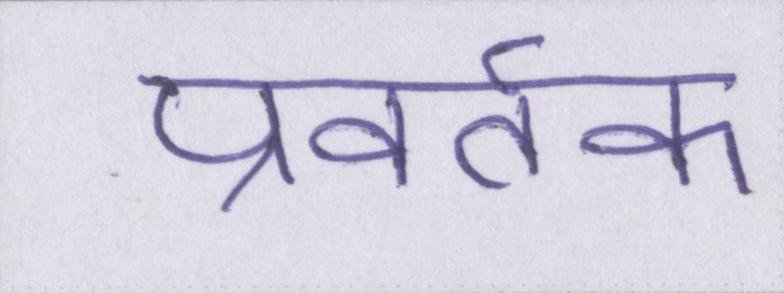 प्रवर्तक